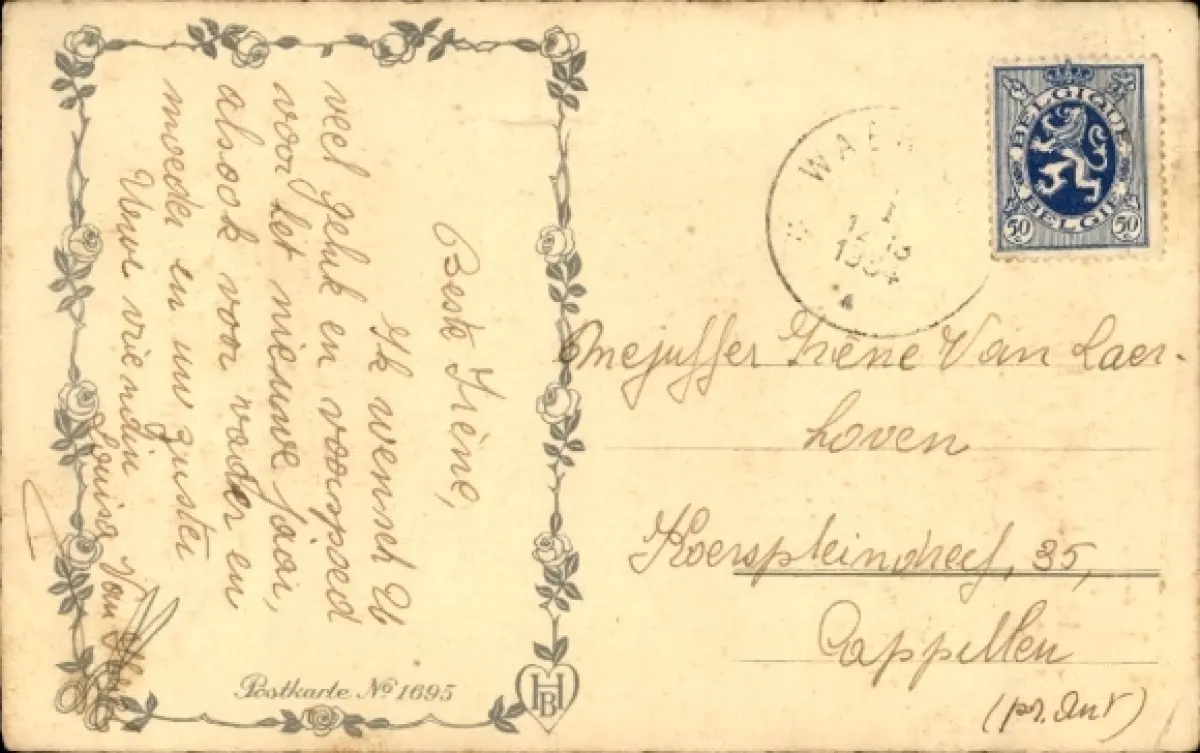 Beste Irène,
Ik wensch U
veel geluk en voorspoed
voor het nieuwe jaar,
alsook voor vader en
moeder en uw zuster
Uwe vriendin
Louisa Van
Postkarte Nº 1695
HB
BELGIQUE
BELGIE
50 50
WAER
1934
Mejuffer Irène Van Laer-
hoven
Koerspleindreef, 35,
Cappellen
(pr. Ant)